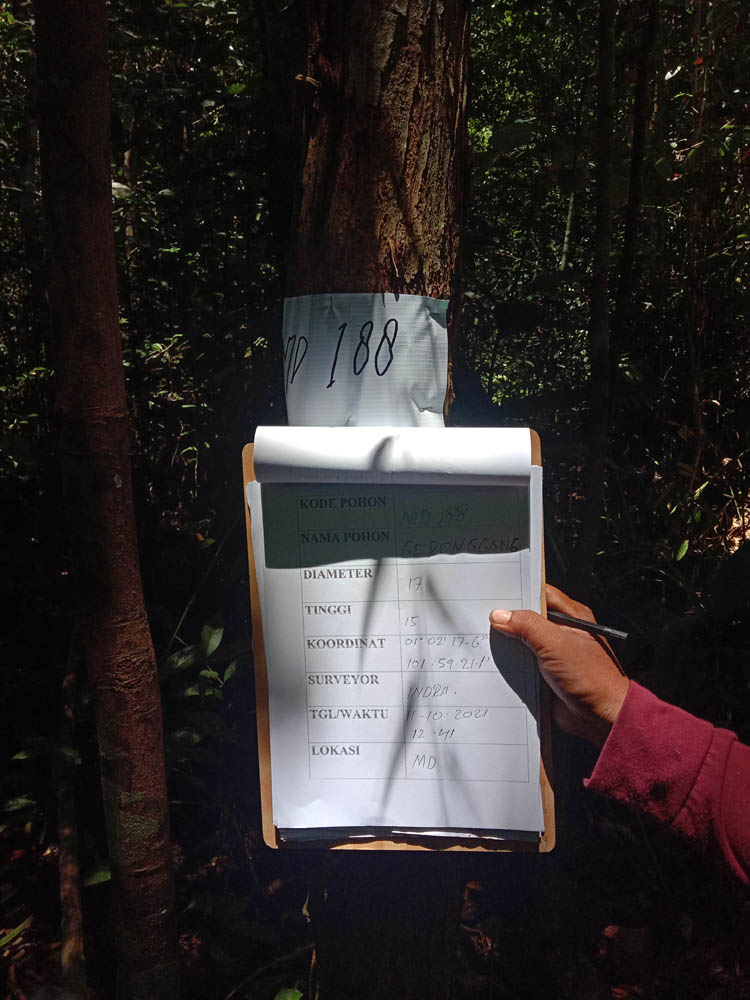 MD 188
KODE POHON MD 188
NAMA POHON GERONGGANG
DIAMETER 17
TINGGI 15
KOORDINAT 01° 02' 17-6"
101-59-21-1'
SURVEYOR INDRA.
TGL/WAKTU 11-10-2021
12-41
LOKASI MD